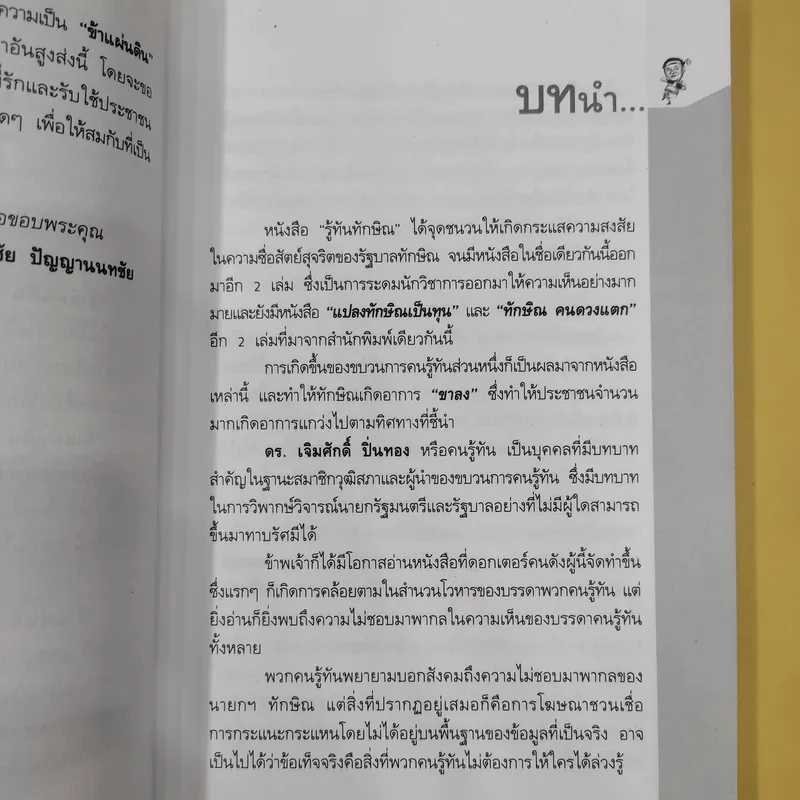 ความเป็น “ข้าแผ่นดิน”
าอันสูงส่งนี้ โดยจะขอ
รักและรับใช้ประชาชน
ดๆ เพื่อให้สมกับที่เป็น
อขอบพระคุณ
ชัย ปัญญานนทชัย
บทนำ...
หนังสือ “รู้ทันทักษิณ” ได้จุดชนวนให้เกิดกระแสความสงสัย
ในความซื่อสัตย์สุจริตของรัฐบาลทักษิณ จนมีหนังสือในชื่อเดียวกันนี้ออก
มาอีก 2 เล่ม ซึ่งเป็นการระดมนักวิชาการออกมาให้ความเห็นอย่างมาก
มายและยังมีหนังสือ “แปลงทักษิณเป็นทุน” และ “ทักษิณ คนดวงแตก”
อีก 2 เล่มที่มาจากสำนักพิมพ์เดียวกันนี้
การเกิดขึ้นของขบวนการคนรู้ทันส่วนหนึ่งก็เป็นผลมาจากหนังสือ
เหล่านี้ และทำให้ทักษิณเกิดอาการ “ขาลง” ซึ่งทำให้ประชาชนจำนวน
มากเกิดอาการแกว่งไปตามทิศทางที่ชี้นำ
ดร. เจิมศักดิ์ ปิ่นทอง หรือคนรู้ทัน เป็นบุคคลที่มีบทบาท
สำคัญในฐานะสมาชิกวุฒิสภาและผู้นำของขบวนการคนรู้ทัน ซึ่งมีบทบาท
ในการวิพากษ์วิจารณ์นายกรัฐมนตรีและรัฐบาลอย่างที่ไม่มีผู้ใดสามารถ
ขึ้นมาทาบรัศมีได้
ข้าพเจ้าก็ได้มีโอกาสอ่านหนังสือที่ดอกเตอร์คนดังผู้นี้จัดทำขึ้น
ซึ่งแรกๆ ก็เกิดการคล้อยตามในสำนวนโวหารของบรรดาพวกคนรู้ทัน แต่
ยิ่งอ่านก็ยิ่งพบถึงความไม่ชอบมาพากลในความเห็นของบรรดาคนรู้ทัน
ทั้งหลาย
พวกคนรู้ทันพยายามบอกสังคมถึงความไม่ชอบมาพากลของ
นายกฯ ทักษิณ แต่สิ่งที่ปรากฏอยู่เสมอก็คือการโฆษณาชวนเชื่อ
การกระแนะกระแหนโดยไม่ได้อยู่บนพื้นฐานของข้อมูลที่เป็นจริง อาจ
เป็นไปได้ว่าข้อเท็จจริงคือสิ่งที่พวกคนรู้ทันไม่ต้องการให้ใครได้ล่วงรู้